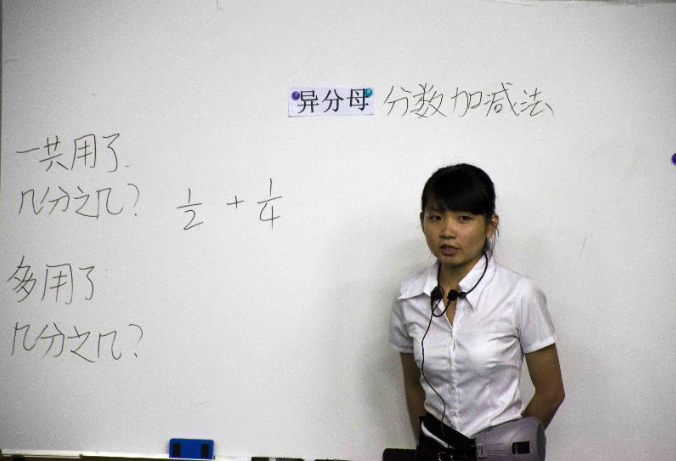 异分母 分数加减法
一共用了
几分之几? 1/2 + 1/4
多用了
几分之几?